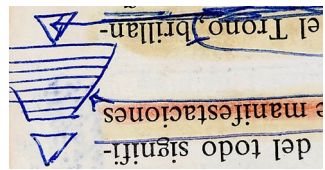 del todo signifi-
e manifestaciones
el Trono, brillan-